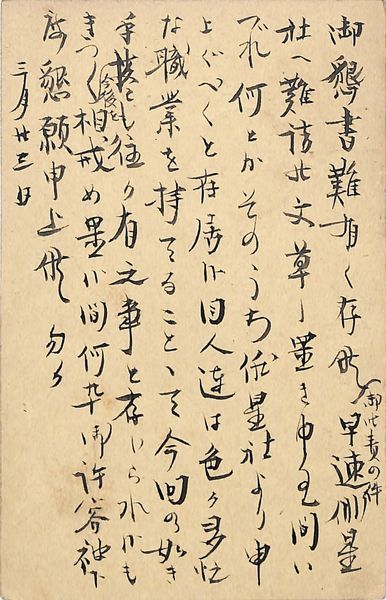 御懇書難有く存候 御叱責の件 早速俳星
社へ難詰の文草し置き申候間い
づれ何とかそのうち俳星社より申
上ぐべくと存居候 同人連は色々多忙
な職業を持てることゝて今回の如き
手抜も往々有之事と存じられ候
きつく相戒め置候間何卒御許容被下
度懇願申上候 匆々
三月廿三日